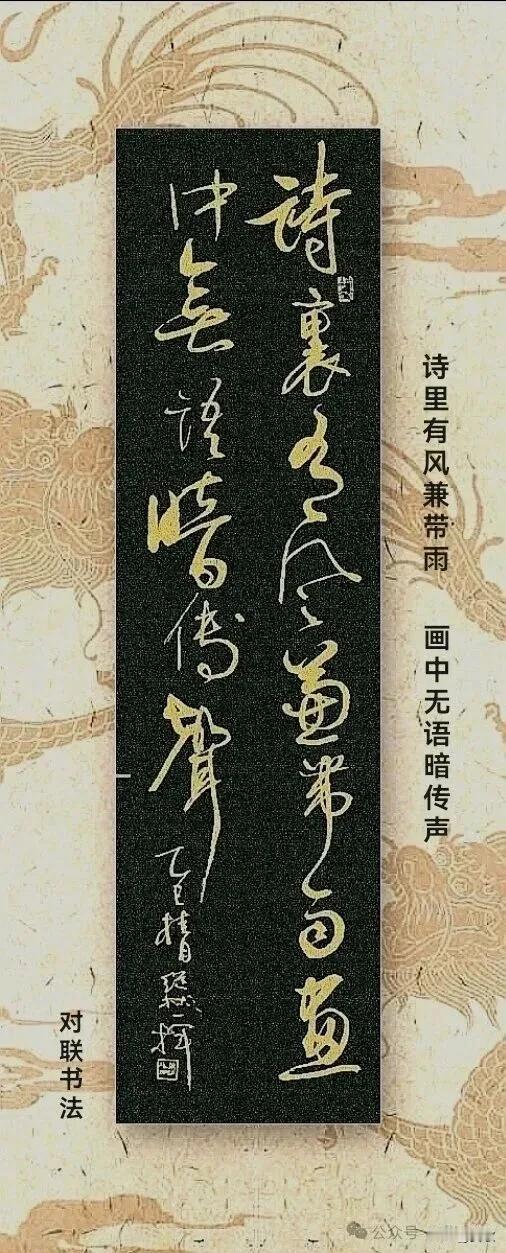 詩裏有风兼带雨畫
中無語暗傳聲
乙巳
诗里有风兼带雨
画中无语暗传声
对联书法
公众号